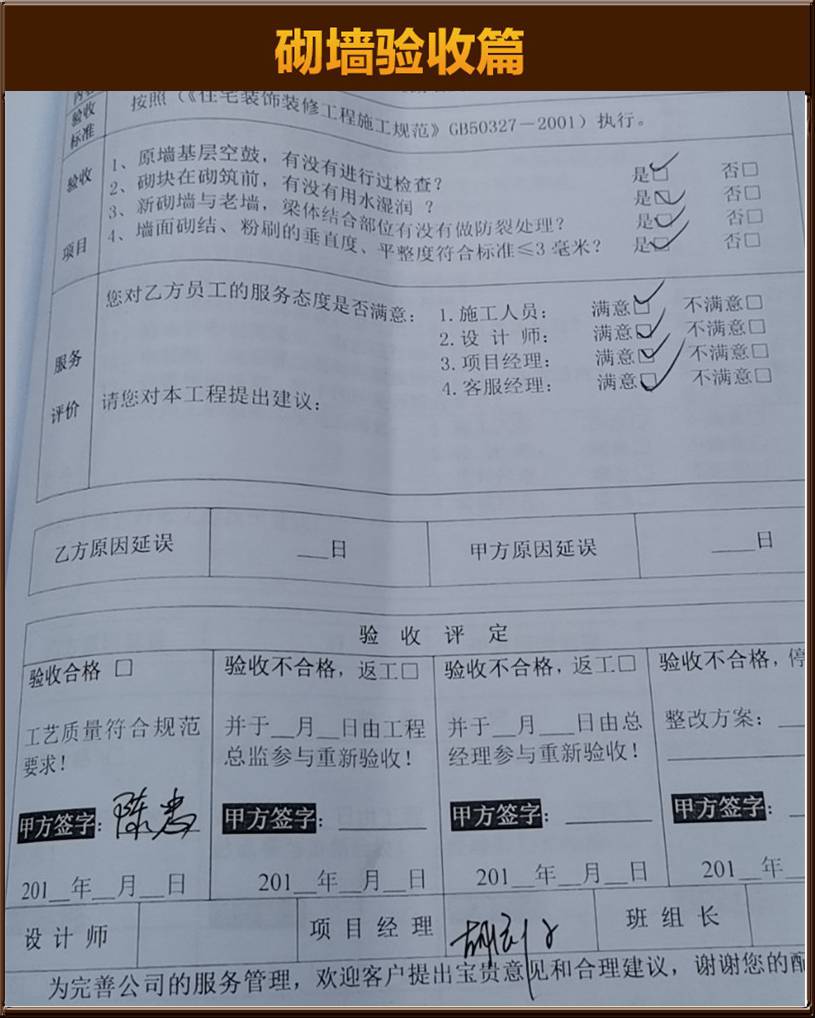 砌墙验收篇
验收
标准
按照（《住宅装饰装修工程施工规范》GB50327－2001）执行。
验收
项目
1、原墙基层空鼓，有没有进行过检查？ 是☑ 否□
2、砌块在砌筑前，有没有用水湿润？ 是☑ 否□
3、新砌墙与老墙，梁体结合部位有没有做防裂处理？ 是☑ 否□
4、墙面砌结、粉刷的垂直度、平整度符合标准≤3毫米？ 是☑ 否□
服务
评价
您对乙方员工的服务态度是否满意： 1.施工人员： 满意☑ 不满意□
2.设计师： 满意☑ 不满意□
3.项目经理： 满意☑ 不满意□
4.客服经理： 满意☑ 不满意□
请您对本工程提出建议：
乙方原因延误 ___日 甲方原因延误 ____日
验收评定
验收合格 □ 验收不合格，返工□ 验收不合格，返工□ 验收不合格，停
工艺质量符合规范 并于__月__日由工程 并于__月___日由总 整改方案：__
要求！ 总监参与重新验收！ 经理参与重新验收！
甲方签字： 甲方签字：______ 甲方签字：______ 甲方签字：_
201__年__月__日 201__年__月__日 201__年__月__日 201__年_
设计师 项目经理 班组长
为完善公司的服务管理，欢迎客户提出宝贵意见和合理建议，谢谢您的配